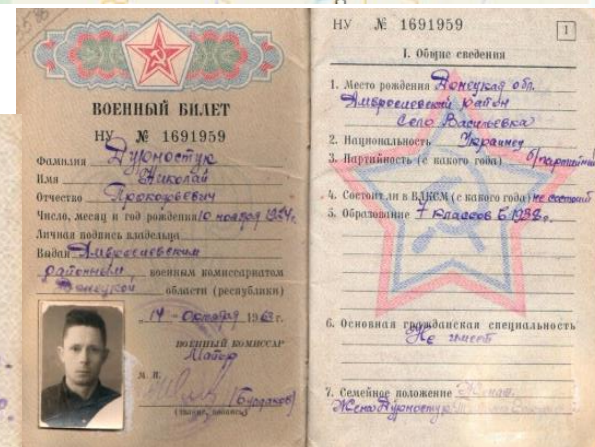 ВОЕННЫЙ БИЛЕТ
НУ № 1691959
Фамилия Дурностук
Имя Николай
Отчество Прокофьевич
Число, месяц и год рождения 10 ноября 1924г.
Личная подпись владельца
Выдан Амвросиевским
районным военным комиссариатом
Донецкой области (республики)
„14 - октября 1963г.
ВОЕННЫЙ КОМИССАР
Майор
М. П.
НУ № 1691959
1
I. Общие сведения
1. Место рождения Донецкая обл.
Амвросиевский район
Село Васильевка
2. Национальность Украинец
3. Партийность (с какого года) б/партийный
4. Состоит ли в ВЛКСМ (с какого года) не состоит
5. Образование 7 классов в 1938г.
6. Основная гражданская специальность
Не имеет
7. Семейное положение Женат.
Жена